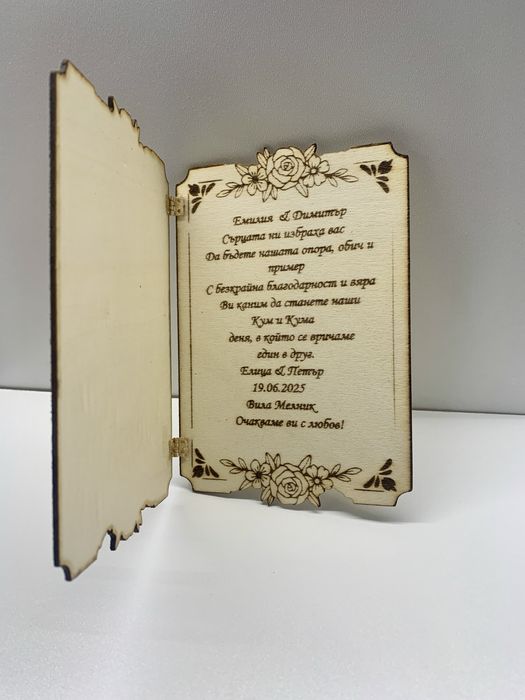 Емилия & Димитър
Сърцата ни избраха вас
Да бъдете нашата опора, обич и
пример
С безкрайна благодарност и вяра
Ви каним да станете наши
Кум и Кума
деня, в който се вричаме
един в друг.
Елица & Петър
19.06.2025
Вила Мелник
Очакваме ви с любов!